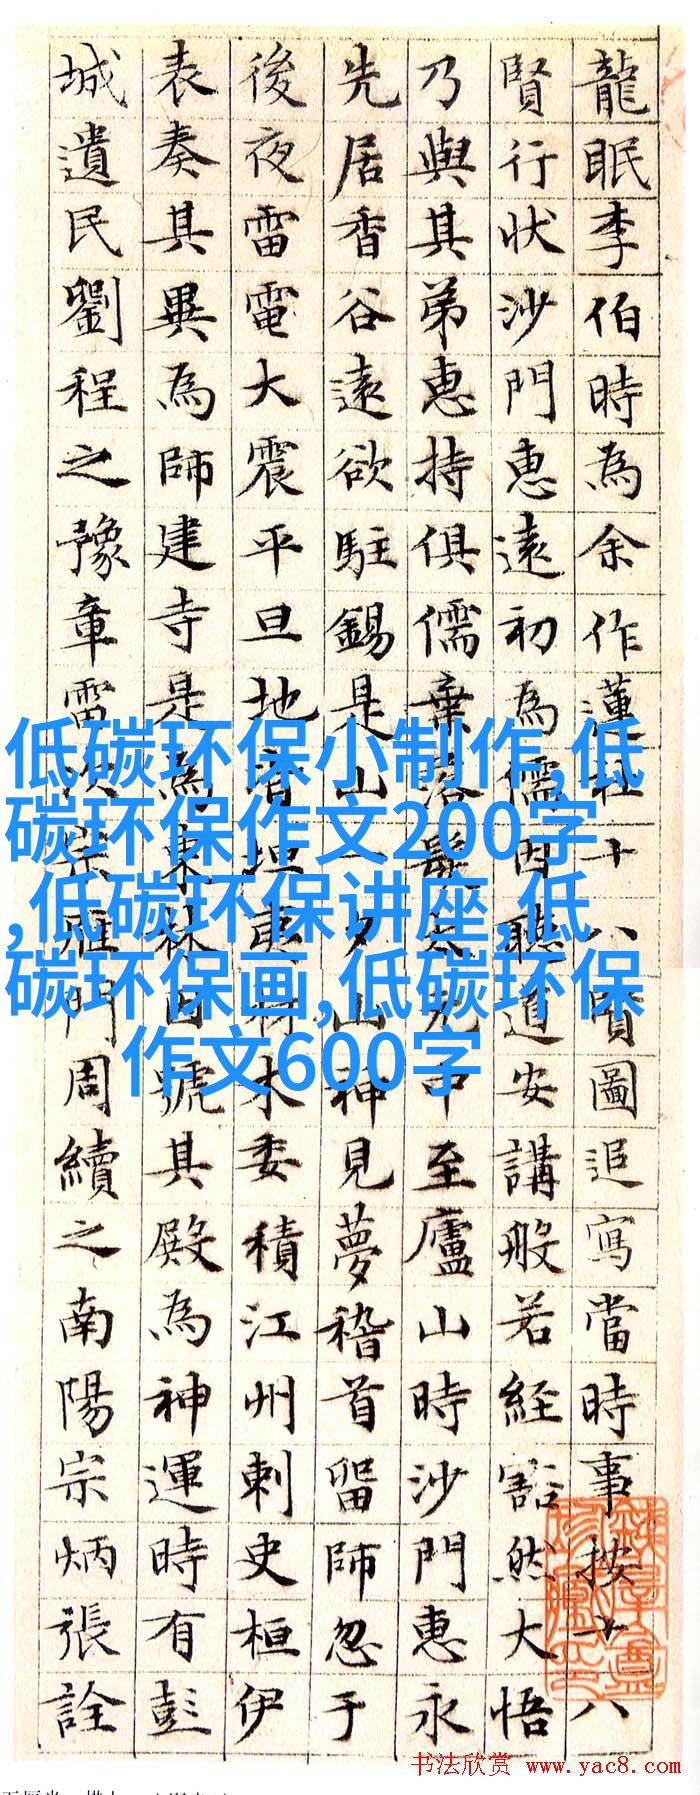 龍眠李伯時為余作蓮社十八賢圖追寫當時事按十八
賢行狀沙門惠遠初為儒因聽道安講般若経豁然大悟
乃與其弟惠持俱儒棄落髮太元中至廬山時沙門惠永
先居香谷遠欲駐錫是山一夕山神見夢稽首留師忽于
後夜雷電大震平旦地皆坦夷材木委積江州刺史桓伊
表奏其異為師建寺是為東林日號其殿為神運時有彭
城遺民劉程之豫章雷次宗雁門周續之南陽宗炳張詮
低碳环保小制作,低
碳环保作文200字
,低碳环保讲座,低
碳环保画,低碳环保
作文600字
书法欣赏 www.yac8.com